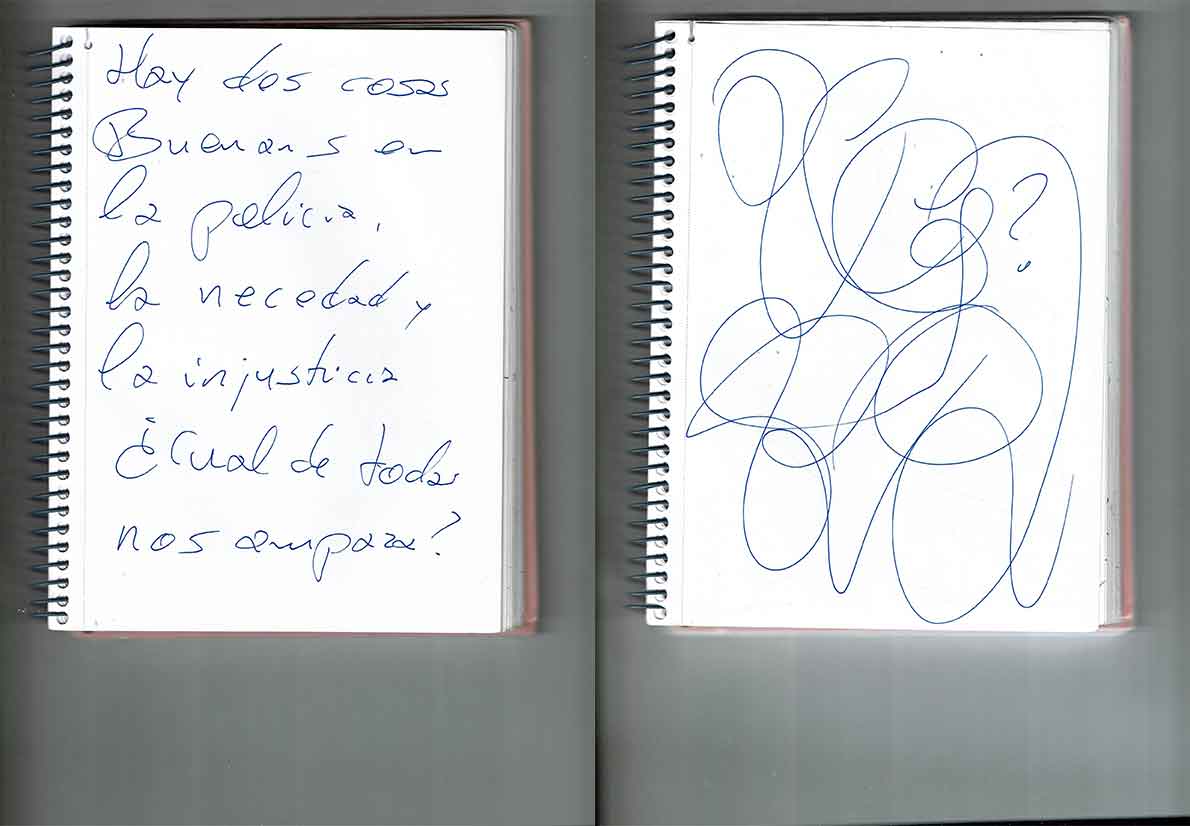 Hay dos cosas
Buenans en
la policia,
la necedad y
la injusticia
¿Cual de todas
nos ampara?
?